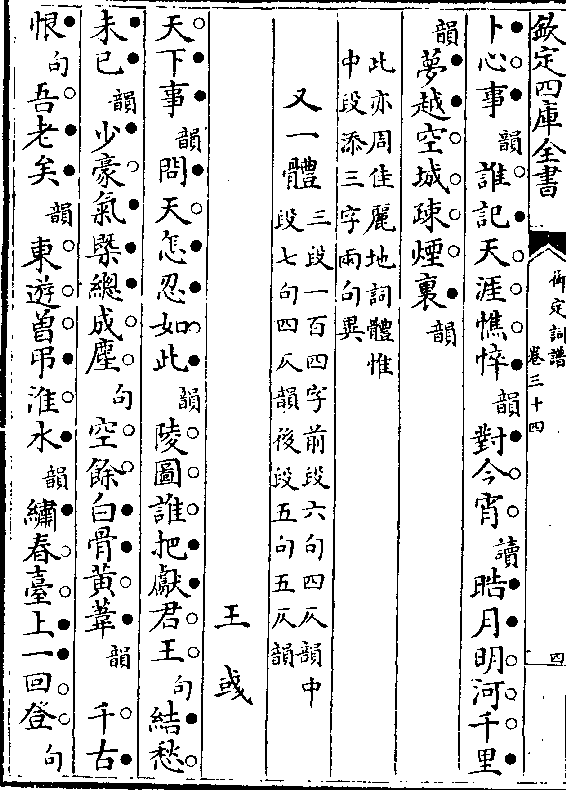 欽定四庫全書
御定詞譜
卷三十四
四
卜心事韻誰記天涯憔悴韻對今宵讀晧月明河千里
韻夢越空城疎煙裏韻
此亦周佳麗地詞體惟
中段添三字兩句異
又一體
三段一百四字前段六句四仄韻中
段七句四仄韻後段五句五仄韻
王彧
天下事韻問天怎忍如此韻陵圖誰把獻君王句結愁
未已韻少豪氣槩總成塵句空餘白骨黃葦韻 千古
恨句吾老矣韻東遊曽弔淮水韻繡春臺上一回登句